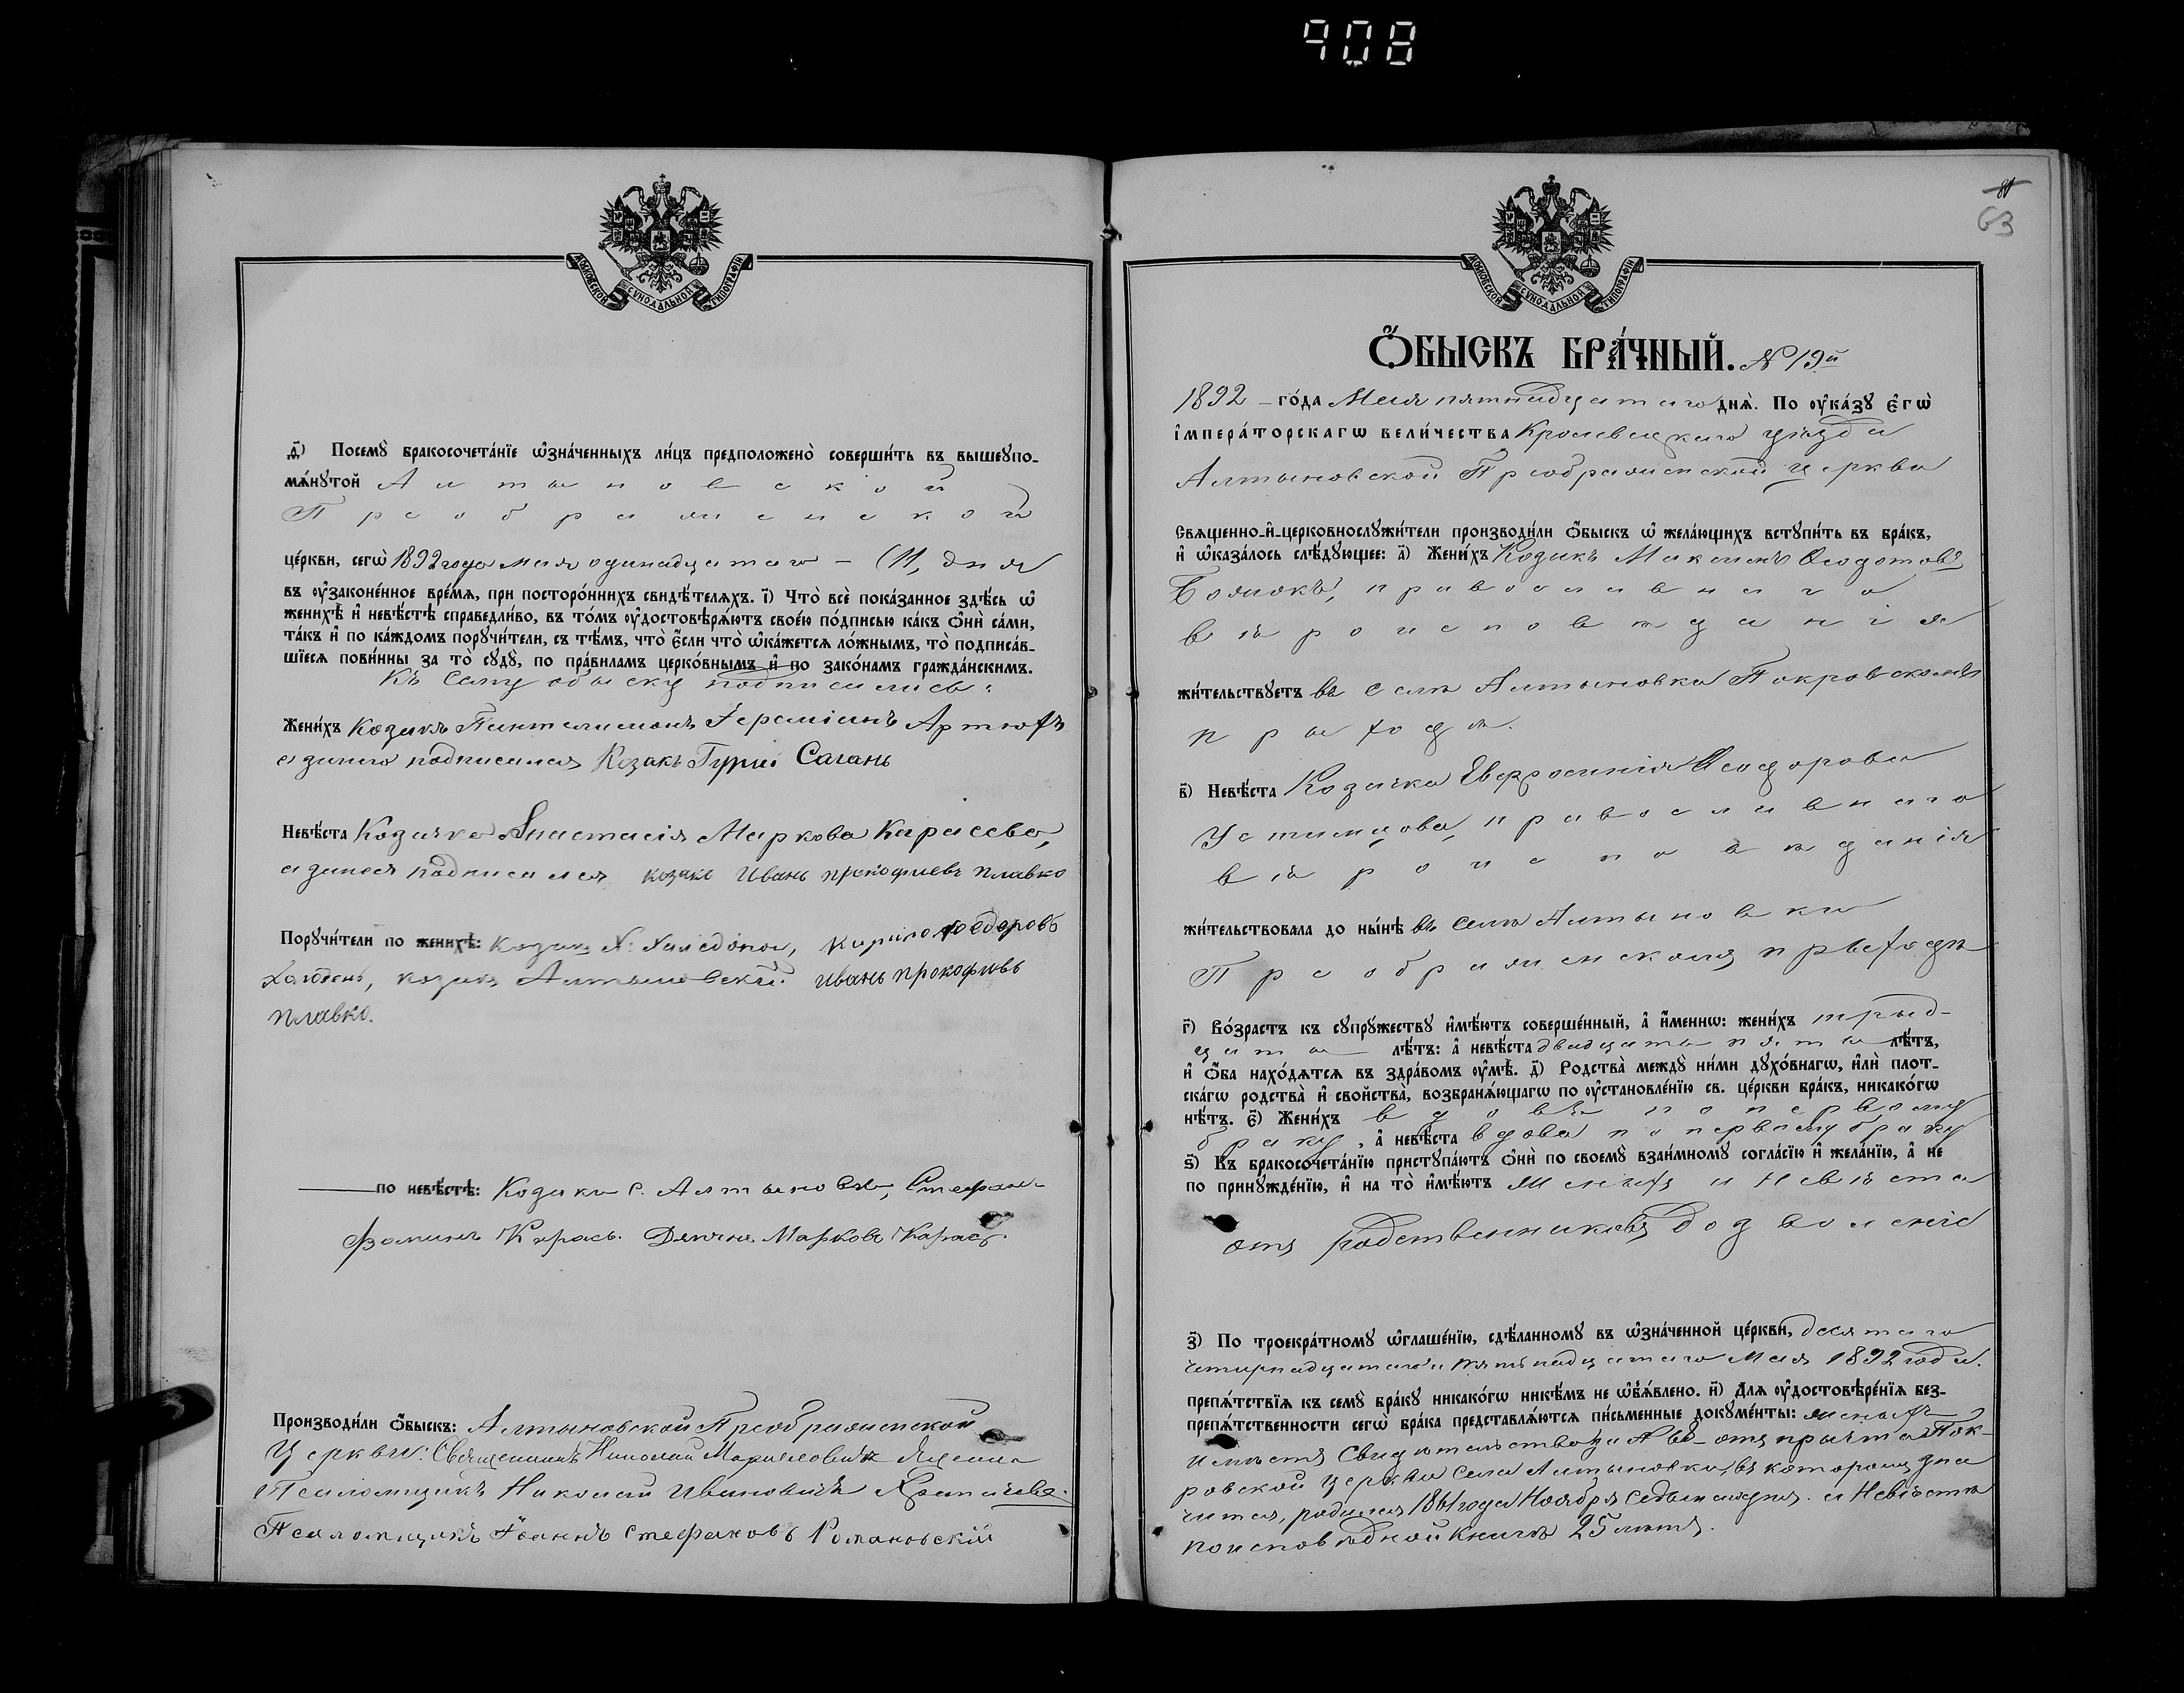 908
МОСКОВСКОЙ СѴНОДАЛЬНОЙ ТИПОГРАФІИ
д҃і) Посемꙋ̀ бракосочета́нїе ѡ҆зна́ченныхъ ли́цъ предположено̀ соверши́ть въ вышеꙋпо-
мѧ́нꙋтой Алтыновской
Преображенской
це́ркви, сегѡ̀ 1892 года мая одинадцатаго – (11, дня
въ ᲂу҆зако́ненное вре́мѧ, при посторо́ннихъ свидѣ́телѧхъ. і҃) Что̀ всѐ пока́занное здѣ́сь ѡ҆
женихѣ̀ и҆ невѣ́стѣ справедли́во, въ то́мъ ᲂу҆достовѣрѧ́ютъ свое́ю по́дписью ка́къ ѻ҆нѝ са́ми,
та́къ и҆ по ка́ждомъ порꙋчи́тели, съ тѣ́мъ, что̀ є҆́сли что̀ ѡ҆ка́жетсѧ ло́жнымъ, то̀ подписа́в-
шїесѧ пови́нны за то̀ сꙋдꙋ̀, по пра́виламъ церко́внымъ и҆ по зако́намъ гражда́нскимъ.
Къ сему обыску подписались:
Жени́хъ Козакъ Пантелиманъ Іереміинъ Артюхъ
а занего подписался Козакъ Гурій Сагань
Невѣ́ста Козачка Анастасія Маркова Карасева,
а занея подписался козакъ Иванъ прокофиевъ плавко
Порꙋчи́тели по женихѣ̀: козак Х. Халедона, Кирило Феодоровъ
козакъ Алтыновскій. иванъ прокофивъ
плавко.
по невѣ́стѣ: Козаки с. Алтыновки, Стефанъ
Фоминъ Карась. Маркова Карась.
Производи́ли ѻ҆́быскъ: Алтыновской Преображенской
Церкви: Священникъ Николай
Псаломщикъ Николай Ивановичъ
Псаломщикъ Іоаннъ Стефановъ Романовскій
63
МОСКОВСКОЙ СѴНОДАЛЬНОЙ ТИПОГРАФІИ
Ѻ҆́БЫСКЪ БРА́ЧНЫЙ. № 19й
1892 – го́да Мая пятнадцатаго днѧ̀. По ᲂу҆ка́зꙋ є҆гѡ̀
і҆мпера́торскагѡ вели́чества Кролевецкаго уѣзда
Алтыновской Преображенской церкви
Свѧще́нно-и҆-церковнослꙋжи́тели производи́ли ѻ҆́быскъ ѡ҆ жела́ющихъ встꙋпи́ть въ бра́къ,
и҆ ѡ҆каза́лось слѣ́дꙋющее: а҃) Жени́хъ Козакъ Максимъ Ѳеодотовъ
Божокъ, православнаго
вѣроисповѣданія
жи́тельствꙋетъ въ селѣ Алтыновки Покровскомъ
приходѣ.
в҃) Невѣ́ста Козачка Евфросинія Ѳеодорова
Устимцова, православнаго
вѣроисповѣданія
жи́тельствовала до ны́нѣ въ селѣ Алтыновки
Преображенскомъ приходѣ
г҃) Во́зрастъ къ сꙋпрꙋ́жествꙋ и҆мѣ́ютъ соверше́нный, а҆ и҆́меннѡ: жени́хъ трид-
цать лѣ́тъ: а҆ невѣ́ста двадцать пять лѣ́тъ,
и҆ ѻ҆́ба нахо́дѧтсѧ въ здра́вомъ ᲂу҆мѣ̀. д҃) Родства̀ междꙋ̀ ни́ми дꙋхо́внагѡ, и҆лѝ плот-
ска́гѡ родства̀ и҆ сво́йства̀, возбранѧ́ющагѡ по ᲂу҆становле́нїю св. це́ркви бра́къ, никако́гѡ
нѣ́тъ. є҃) Жени́хъ вдовъ по первому
браку, а҆ невѣ́ста вдова по первому браку
ѕ҃) Къ бракосочета́нїю пристꙋпа́ютъ ѻ҆нѝ по своемꙋ̀ взаи́мномꙋ согла́сїю и҆ жела́нїю, а҆ не
по принꙋжде́нїю, и҆ на то̀ и҆мѣ́ютъ Женихъ и Невѣста
отъ родственниковъ дозволеніе
з҃) По троекра́тномꙋ ѡ҆глаше́нїю, сдѣ́ланномꙋ въ ѡ҆зна́ченной це́ркви, десятаго
четырнадцатаго и пятьнадцатаго Мая 1892 года.
препѧ́тствїѧ къ семꙋ̀ бра́кꙋ никако́гѡ никѣ́мъ не ѡ҆б̾ѧ́влено. и҃) Для ᲂу҆достовѣре́нїѧ без-
препѧ́тственности сегѡ̀ бра́ка представлѧ́ютсѧ пи́сьменные докꙋме́нты: женихъ
имѣетъ Свидѣтельство за № отъ причта Пок-
ровской церкви села Алтыновки, въ которомъ зна
чится, родился 1861 года Ноября седьмаго дня. а Невѣста
поисповѣдной Книгѣ 25 лѣтъ.